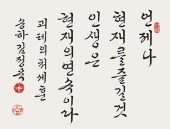 언제나
현재를 즐길 것
인생은
현재의 연속이다
괴테의 처세훈
송하 김정묵